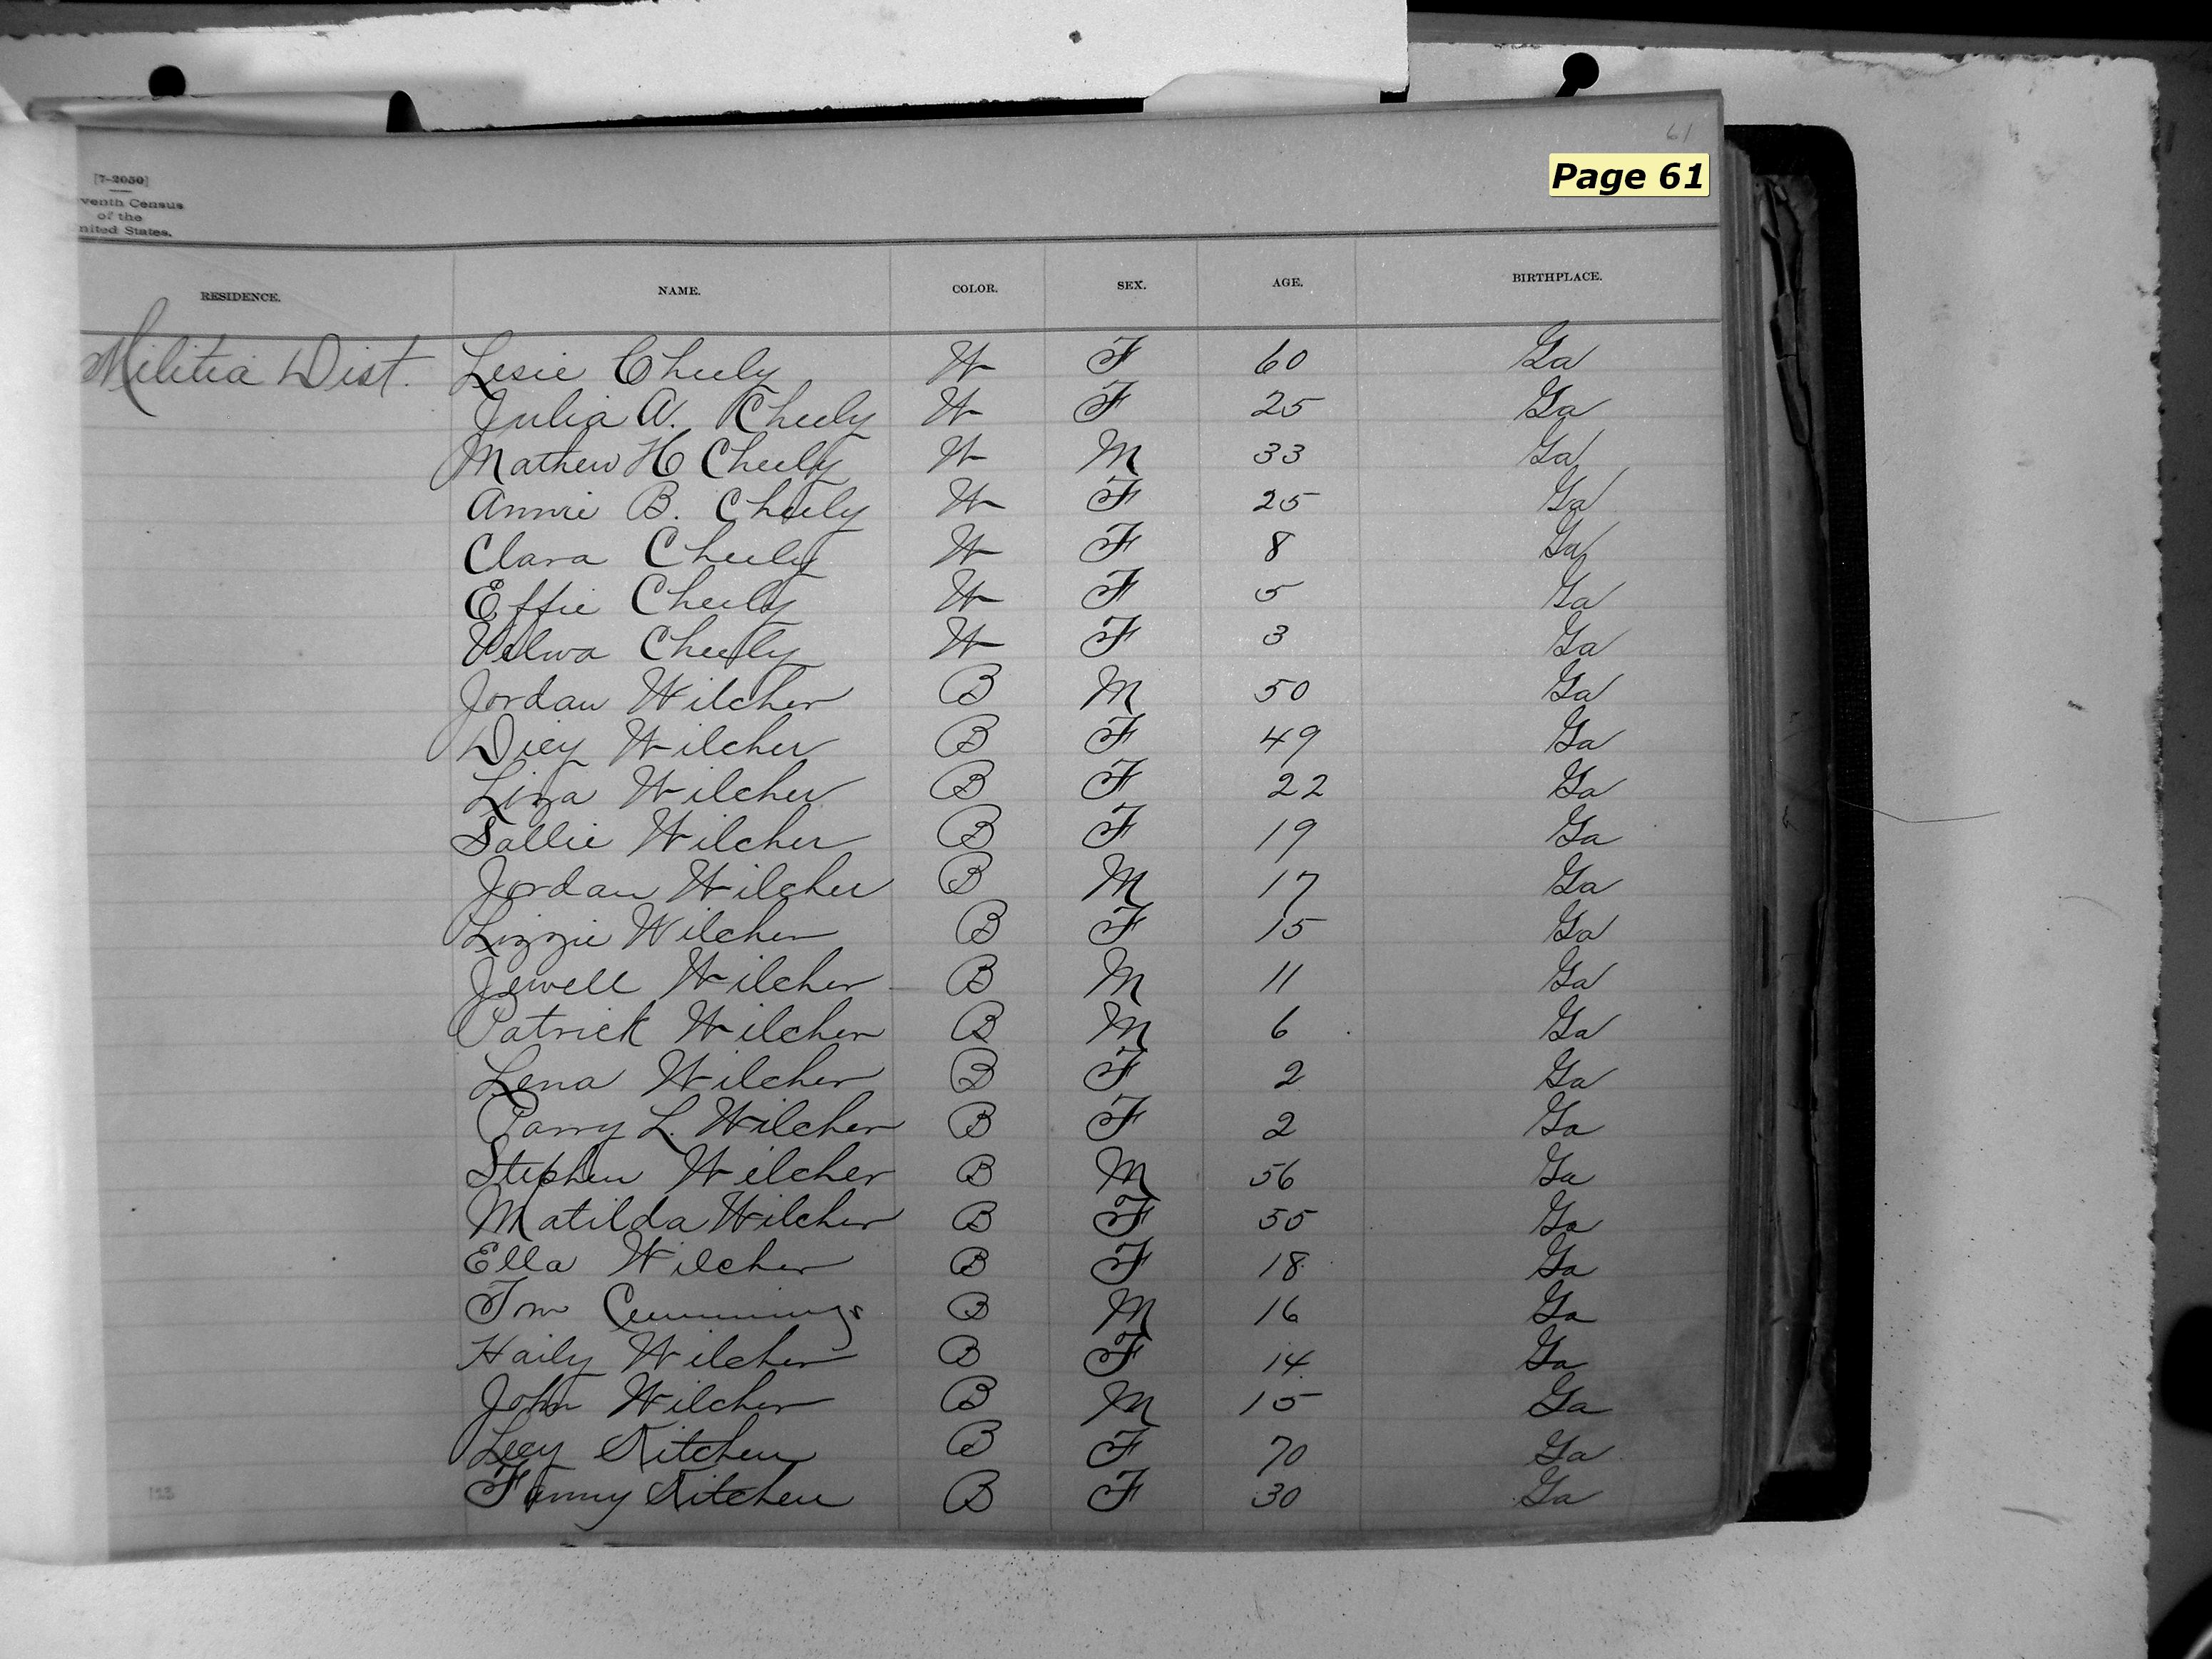 61
Page 61
[7-2050]
venth Census
of the
nited States.
RESIDENCE. NAME. COLOR. SEX. AGE. BIRTHPLACE.
Militia Dist. Lesie Cheely W F 60 Ga
Julia A. Cheely W F 25 Ga
Mathew H Cheely W M 33 Ga
Annie B. Cheely W F 25 Ga
Clara Cheely W F 8 Ga
Effie Cheely W F 5 Ga
Velma Cheely W F 3 Ga
Jordan Wilcher B M 50 Ga
Dicy Wilcher B F 49 Ga
Liza Wilcher B F 22 Ga
Sallie Wilcher B F 19 Ga
Jordan Wilcher B M 17 Ga
Lizzie Wilcher B F 15 Ga
Jewell Wilcher B M 11 Ga
Patrick Wilcher B M 6 Ga
Lena Wilcher B F 2 Ga
L. Wilcher B F 2 Ga
Stephen Wilcher B M 56 Ga
Matilda Wilcher B F 55 Ga
Ella Wilcher B F 18 Ga
Tom Cummings B M 16 Ga
Haily Wilcher B F 14 Ga
John Wilcher B M 15 Ga
Kitchen B F 70 Ga
Fanny Kitchen B F 30 Ga